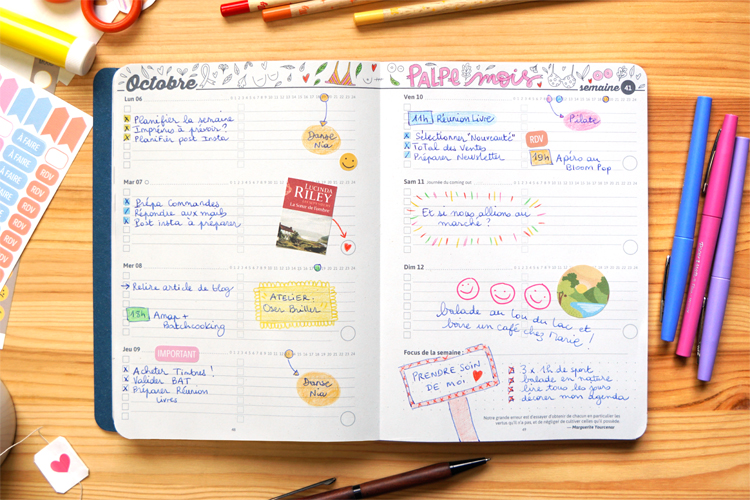 Octobre
PALPE mois
semaine 41
Lun 06
Planifier la semaine
Imprévus à prévoir ?
Planifier post Insta
Danse
Nia
Mar 07
Prépa Commandes
Répondre aux mails
Post insta à préparer
LUCINDA
RILEY
La sœur de l'ombre
Mer 08
→ Relire article de blog
18h Amap +
Batchcooking
ATELIER :
Oser Briller
Jeu 09
IMPORTANT
Acheter Timbres !
Valider BAT
Préparer Réunion
Livres
Danse
Nia
Ven 10
11h Réunion Livre
Sélectionner "Nouveauté"
ToTal des Ventes
Préparer Newsletter
Pilate
RDV
19h Apéro au
Bloom Pop
Sam 11 Journée du coming out
Et si nous allions au
marché ?
Dim 12
balade au tou du Lac et
boire un café chez Marie !
Focus de la semaine :
PRENDRE SOIN
DE MOI
3 x 1h de sport
balade en nature
lire tous les jours
décorer mon agenda
Notre grande erreur est d'essayer d'obtenir de chacun en particulier les
vertus qu'il n'a pas, et de négliger de cultiver celles qu'il possède.
— Marguerite Yourcenar
À FAIRE
À FAIRE
À FAIRE
À FAIRE
RDV
RDV
RDV
RDV